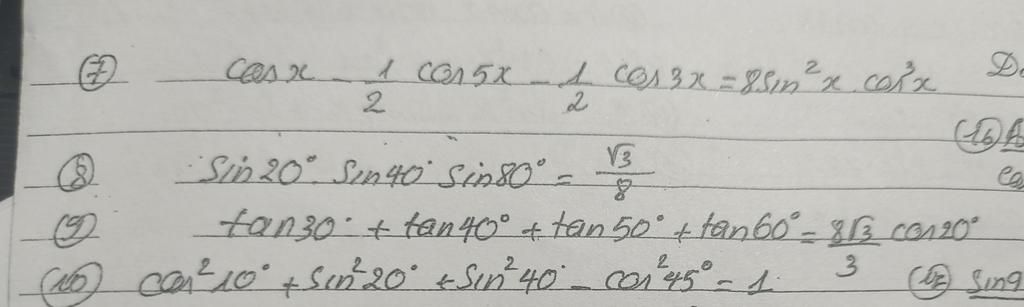 (7) cos x - 1/2 cos 5x - 1/2 cos 3x = 8 sin² x . cos³ x
(8) sin 20° . sin 40° sin 80° = √3/8
(9) tan 30° + tan 40° + tan 50° + tan 60° = 8√3/3 cos 20°
(10) cos² 10° + sin² 20° + sin² 40° - cos² 45° = 1
(16)